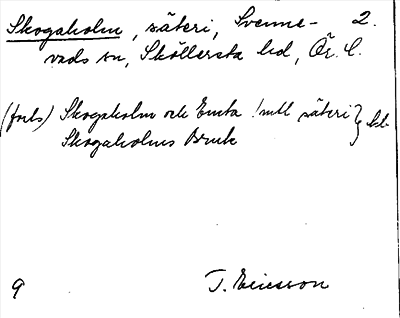 Skogaholm, säteri, Svenne- 2.
vads sn, Sköllersta hd, Ör. l.
(forts) Skogaholm och Emta 1 mtl säteri } kb
Skogaholms Bruk
9 T. Ericsson